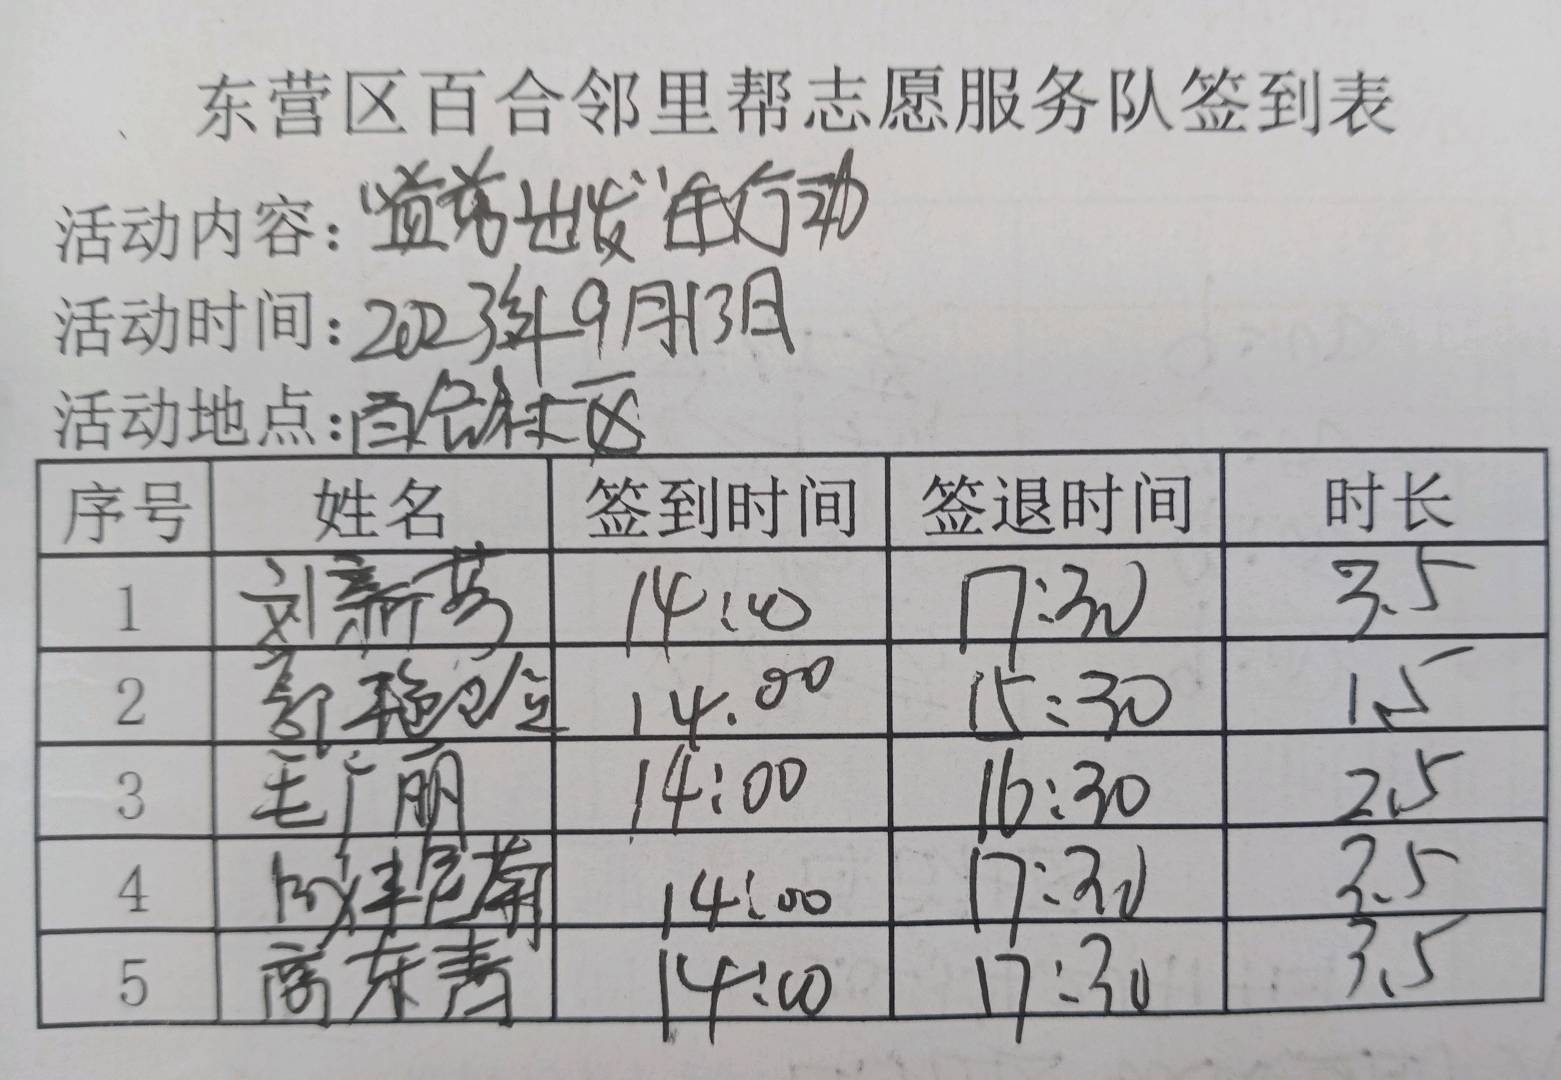 东营区百合邻里帮志愿服务队签到表
活动内容：出发 行动
活动时间：2023年9月13日
活动地点：百合社区
序号 姓名 签到时间 签退时间 时长
1 刘新芳 14:00 17:30 3.5
2 郭艳 14.00 15:30 1.5
3 毛广丽 14:00 16:30 2.5
4 14:00 17:30 3.5
5 商东青 14:00 17:30 3.5